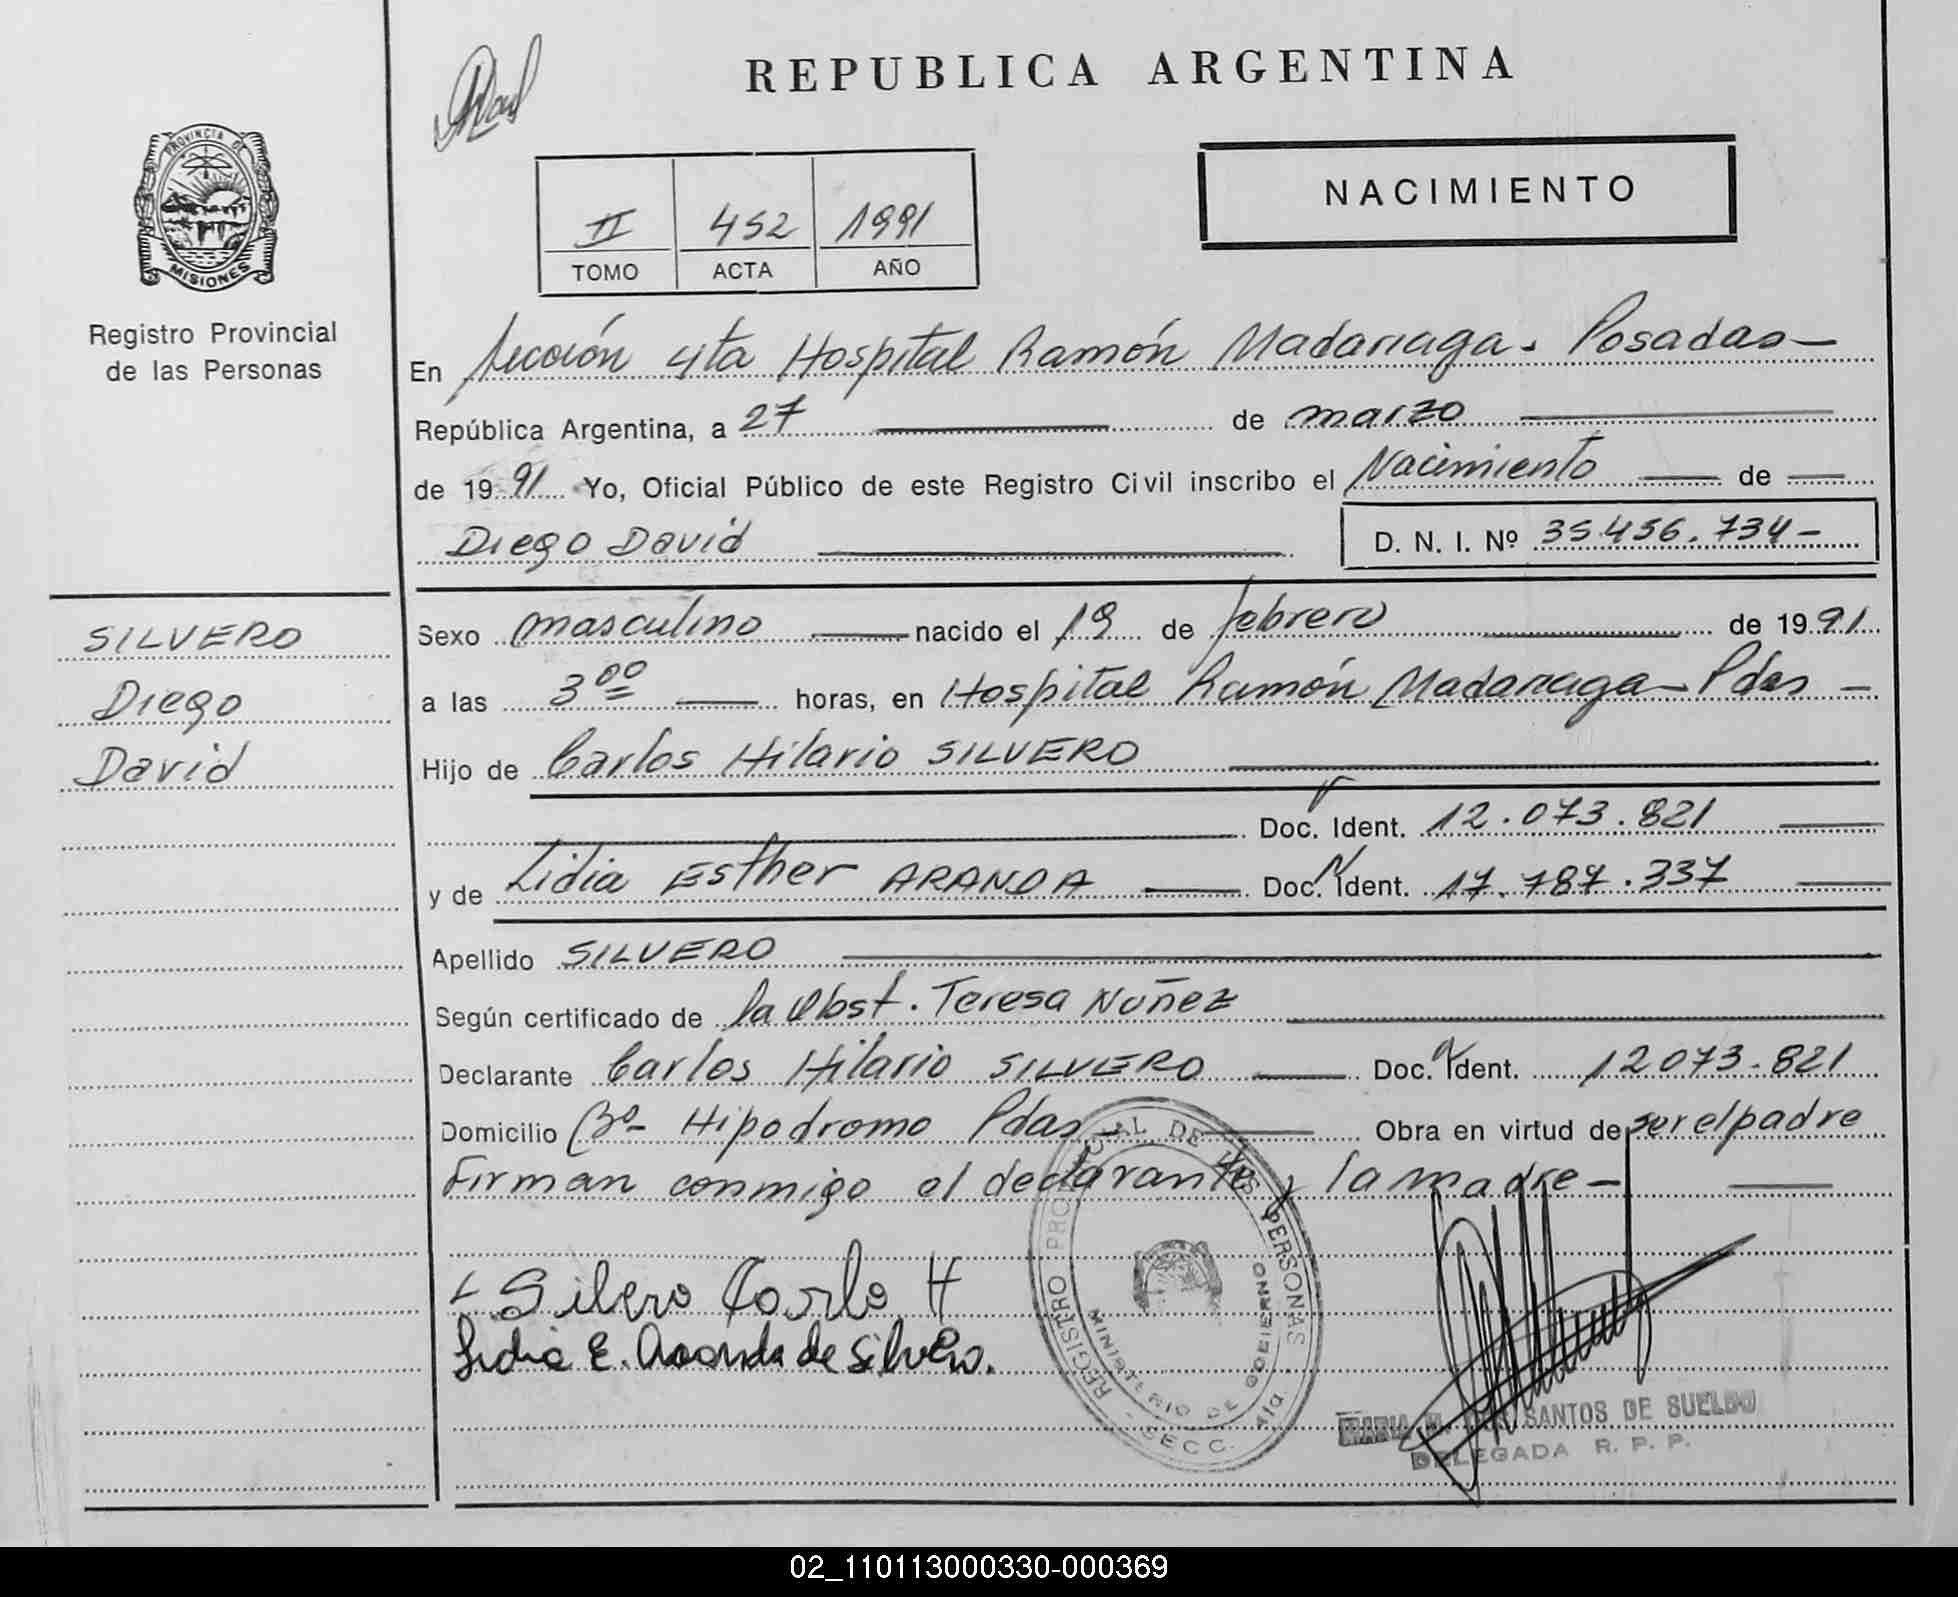 REPUBLICA ARGENTINA
NACIMIENTO
II 452 1991
TOMO ACTA AÑO
PROVINCIA DE MISIONES
Registro Provincial
de las Personas
En Sección 4ta Hospital Ramón Madariaga. Posadas
República Argentina, a 27 de marzo
de 1991 Yo, Oficial Público de este Registro Civil inscribo el Nacimiento de
Diego David D. N. I. Nº 35.456.734-
SILVERO
Diego
David
Sexo masculino nacido el 19 de febrero de 1991
a las 3 00 horas, en Hospital Ramón Madariaga - Pdas -
Hijo de Carlos Hilario SILVERO
Doc. Ident. 12.073.821
y de Lidia Esther ARANDA Doc. Ident. 17.787.337
Apellido SILVERO
Según certificado de la Obst. Teresa Nuñez
Declarante Carlos Hilario SILVERO Doc. Ident. 12.073.821
Domicilio Bº- Hipodromo Pdas - Obra en virtud de ser el padre
Firman conmigo el declarante y la madre -
Silvero Carlo H
Lidia E. Aranda de Silvero.
REGISTRO PROVINCIAL DE LAS PERSONAS
MINISTERIO DE GOBIERNO
SECC. 4ta
MARIA DOS SANTOS DE SUELDO
DELEGADA R. P. P.
02_110113000330-000369